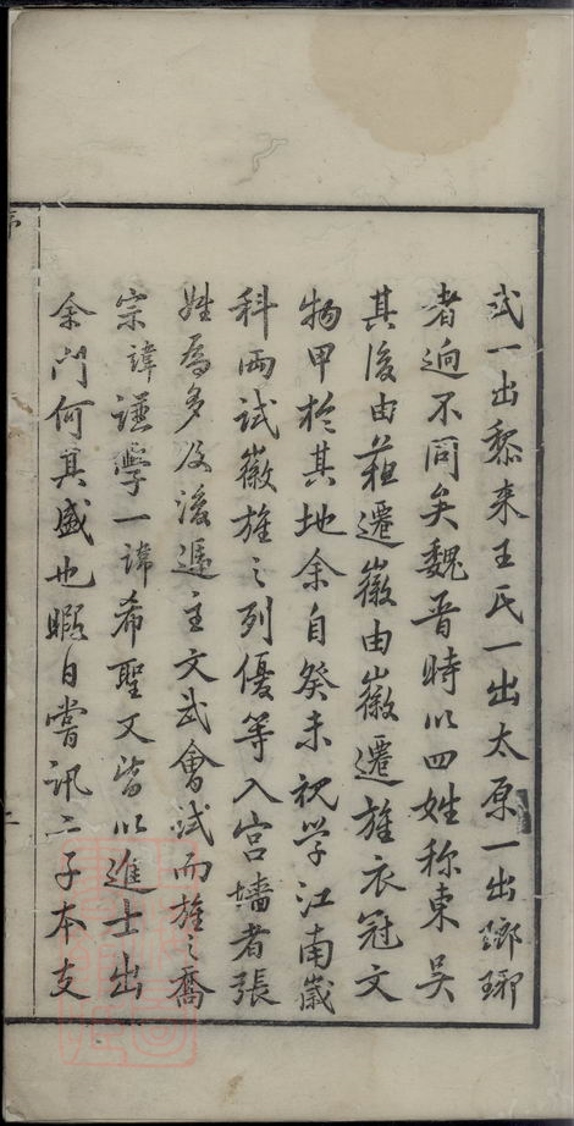 式一出黎来王氏一出太原一出瑯琊
者逈不同矣魏晋時以四姓称東吴
其後由蘓遷徽由徽遷旌衣冠文
物甲於其地余自癸未視学江南歲
科兩試徽旌之列優等入宫墻者張
姓為多及後遞主文武會試而旌之喬
宗諱謹學一諱希聖又皆以進士出
余门何其盛也暇日嘗訊二子本支